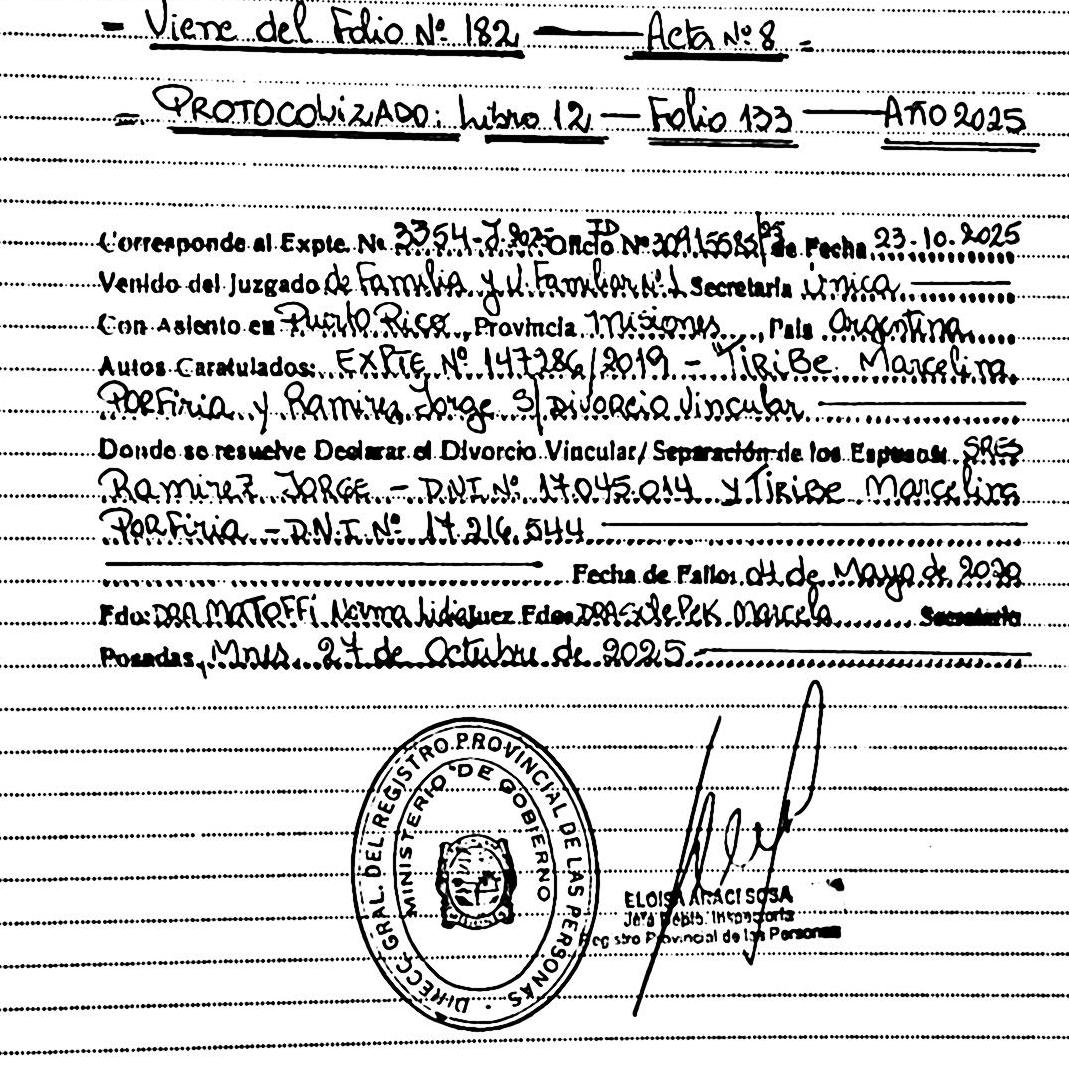 = Viene del Folio Nº 182 — Acta Nº 8 =
= PROTOCOLIZADO: Libro 12 — Folio 133 — AÑO 2025
Corresponde al Expte. Nº 3354-J-2025 Oficio Nº de Fecha 23.10.2025
Venido del Juzgado de Familia y V. Familiar Nº 1 Secretaria Única
Con Asiento en Puerto Rico, Provincia Misiones, Pais Argentina
Autos Caratulados: EXPTE Nº 147286/2019 - "TIRIBE Marcelina
PORFIRIA y Ramirez Jorge S/ Divorcio Vincular
Donde se resuelve Declarar el Divorcio Vincular/ Separación de los Esposos: SRES
Ramirez JORGE - D.N.I. Nº 17.045.014 y TIRIBE Marcelina
PORFIRIA - D.N.I. Nº 17.216.544
Fecha de Fallo: 04 de Mayo de 2020
Fdo: DRA MATOFFI Norma Lidia Juez Fdo: DRA Marcela Secretaria
Posadas, Mnes. 27 de Octubre de 2025
DIRECC. GRAL. DEL REGISTRO PROVINCIAL DE LAS PERSONAS
MINISTERIO DE GOBIERNO
ELOISA ARACI SOSA
Jefa Depto.
Registro Provincial de las Personas